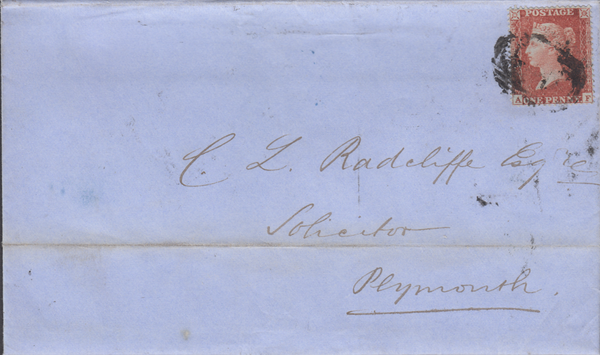 POSTAGE
A ONE PENNY F
C. L. Radcliffe Esqre
Solicitor
Plymouth.